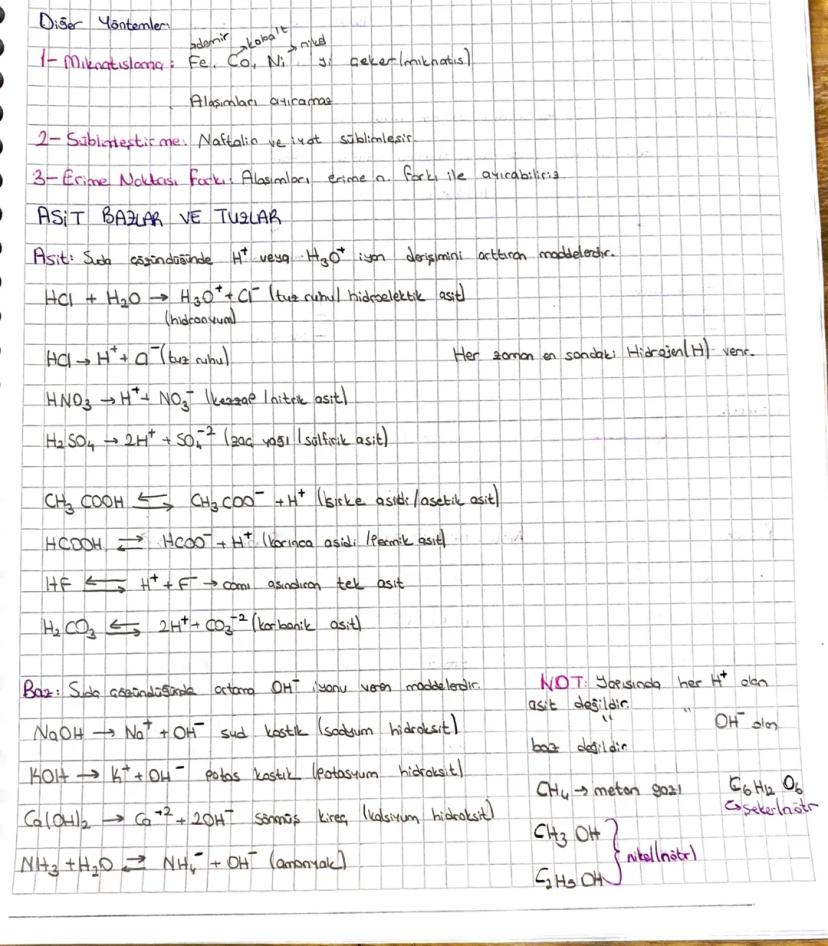 Diğer Yöntemler
→demir →kobalt →nikel
1- Mıknatıslama: Fe, Co, Ni yi çeker (mıknatıs)
Alaşımları ayıramaz
2- Süblimleştirme: Naftalin ve iyot süblimleşir.
3- Erime Noktası Farkı: Alaşımları erime n. farkı ile ayırabiliriz
ASİT BAZLAR VE TUZLAR
Asit: Suda çözündüğünde H⁺ veya H₃O⁺ iyon derişimini arttıran maddelerdir.
HCl + H₂O → H₃O⁺ + Cl⁻ (tuz ruhu/ hidroelektik asit)
(hidronyum)
HCl → H⁺ + Cl⁻ (tuz ruhu)
Her zaman en sondaki Hidrojen(H) verir.
HNO₃ → H⁺ + NO₃⁻ (kezzap / nitrik asit)
H₂SO₄ → 2H⁺ + SO₄⁻² (zaç yağı / sülfirik asit)
CH₃COOH ⇆ CH₃COO⁻ + H⁺ (sirke asidi/asetik asit)
HCOOH ⇄ HCOO⁻ + H⁺ (karınca asidi /formik asit)
HF ⇆ H⁺ + F⁻ → camı aşındıran tek asit
H₂CO₃ ⇆ 2H⁺ + CO₃⁻² (karbonik asit)
Baz: Suda çözündüğünde ortama OH⁻ iyonu veren maddelerdir.
NaOH → Na⁺ + OH⁻ sud kostik (sodyum hidroksit)
KOH → K⁺ + OH⁻ potas kostik (potasyum hidroksit)
Ca(OH)₂ → Ca⁺² + 2OH⁻ sönmüş kireç (kalsiyum hidroksit)
NH₃ + H₂O ⇄ NH₄⁻ + OH⁻ (amonyak)
NOT: Yapısında her H⁺ olan
asit değildir.
" " OH⁻ olan
baz değildir
CH₄ → metan gazı
C₆H₁₂O₆
↳ şeker(nötr
CH₃OH
C₂H₅OH
} (nötr)